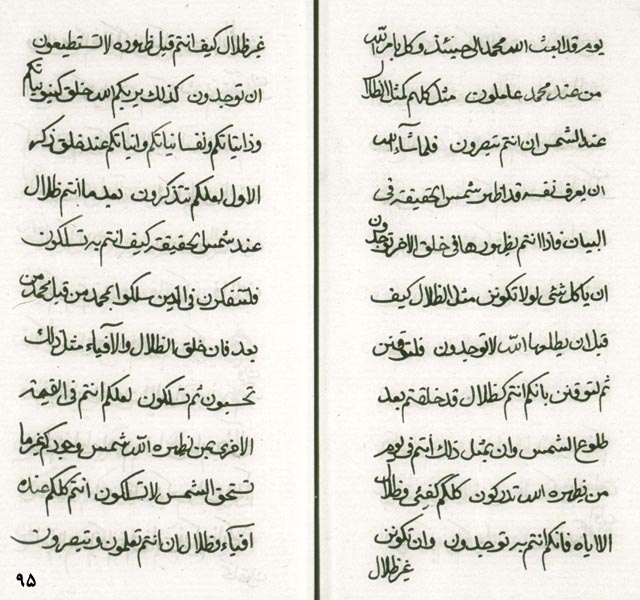 يوم قد ابعث الله محمد الحينئذ وكل بامر الله
من عند محمد عاملون مثل كلهم كمثل الظلال
عند الشمس ان انتم تبصرون فلما شاء الله
ان يعرف نفسه قد اظهر شمس الحقيقة في
البيان فاذا انتم بظهورها في خلق الاخر توجدون
ان يا كل شئ لولا تكونن مثل الظلال كيف
قبل ان يطلعها الله لا توجدون فلتوقنن
ثم لتوقنن بانكم انتم كظلال قد خلقتم بعد
طلوع الشمس وان بمثل ذلك انتم في يوم
من يظهره الله تدركون كلكم كفيئ وظلال
الا اياه فانكم انتم به توجدون وان تكونن
غير ظلال
غير ظلال كيف انتم قبل ظهوره لا تستطيعون
ان توجدون كذلك يريكم الله خلق كينونياتكم
وذاتياتكم ونفسانياتكم وانياتكم عند خلق ذكر
الاول لعلكم تتذكرون بعد ما انتم ظلال
عند شمس الحقيقة كيف انتم به تسلكون
فلتتفكرن في الذين سلكوا بمحمد من قبل محمد من
بعد فان خلق الظلال والافياء مثل ذلك
تحسبون ثم تسلكون لعلكم انتم في القيمة
الاخرى بمن يظهره الله شمس وجودكم غير ما
تستحق الشمس لا تسلكون انتم كلكم عنده
افياء وظلال ان انتم تعلمون وتبصرون
٩٥